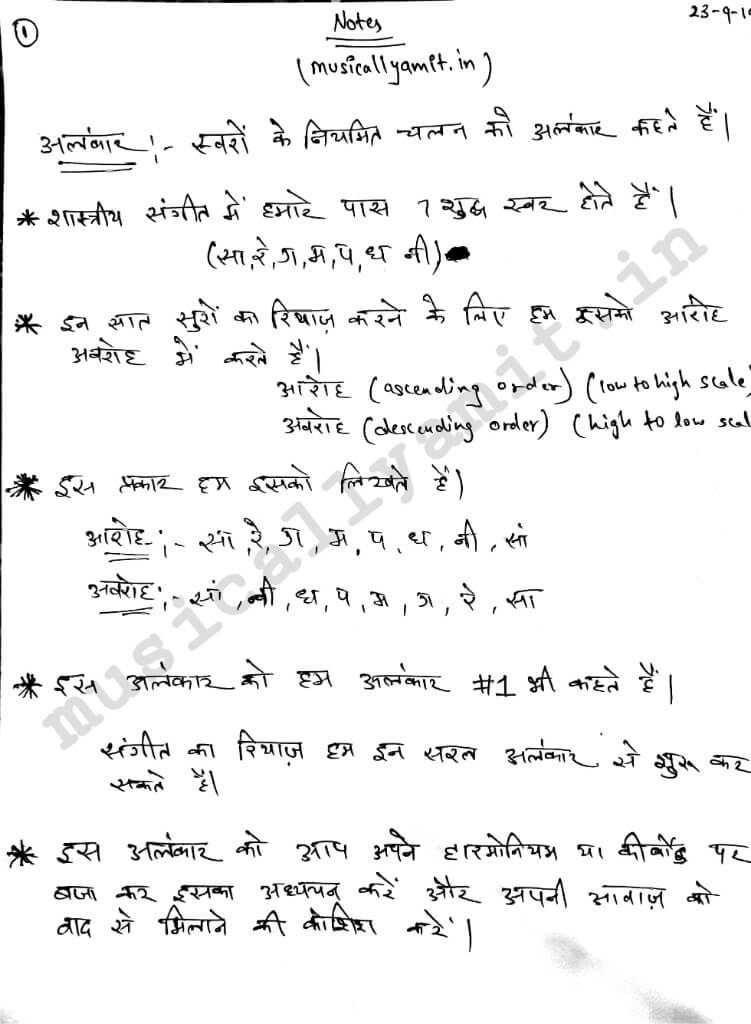 ① Notes 23-9-19
(musicallyamit.in)
अलंकार :- स्वरों के नियमित चलन को अलंकार कहते हैं।
* शास्त्रीय संगीत में हमारे पास 7 शुद्ध स्वर होते हैं।
(सा, रे, ग, म, प, ध नी)
* इन सात सुरों का रियाज़ करने के लिए हम इसको आरोह
अवरोह में करते हैं।
आरोह (ascending order) (low to high scale)
अवरोह (descending order) (high to low scal
* इस प्रकार हम इसको लिखते हैं।
आरोह :- सा, रे, ग, म, प, ध, नी, सां
अवरोह :- सां, नी, ध, प, म, ग, रे, सा
* इस अलंकार को हम अलंकार #1 भी कहते हैं।
संगीत का रियाज़ हम इन सरल अलंकार से शुरू कर
सकते हैं।
* इस अलंकार को आप अपने हारमोनियम या कीबोर्ड पर
बजा कर इसका अध्ययन करें और अपनी आवाज़ को
वाद से मिलाने की कोशिश करें।
musicallyamit.in